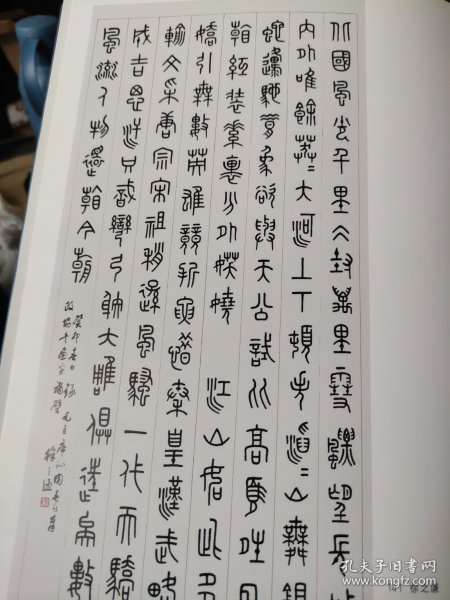 北國風光千里仌封萬里雪飄望長
内外唯餘莽=大河上下頓失滔=山舞銀
蛇原馳蠟象欲與天公試比高須晴日
看紅裝素裹分外妖嬈 江山如此多
嬌引無數英雄競折腰惜秦皇漢武略
輸文采唐宗宋祖稍遜風騷一代天驕
成吉思汗只識彎弓射大雕俱往矣數
風流人物還看今朝
癸卯春日錄毛主席沁園春
徐之谦
孔夫子旧书网
book.kongfz.com